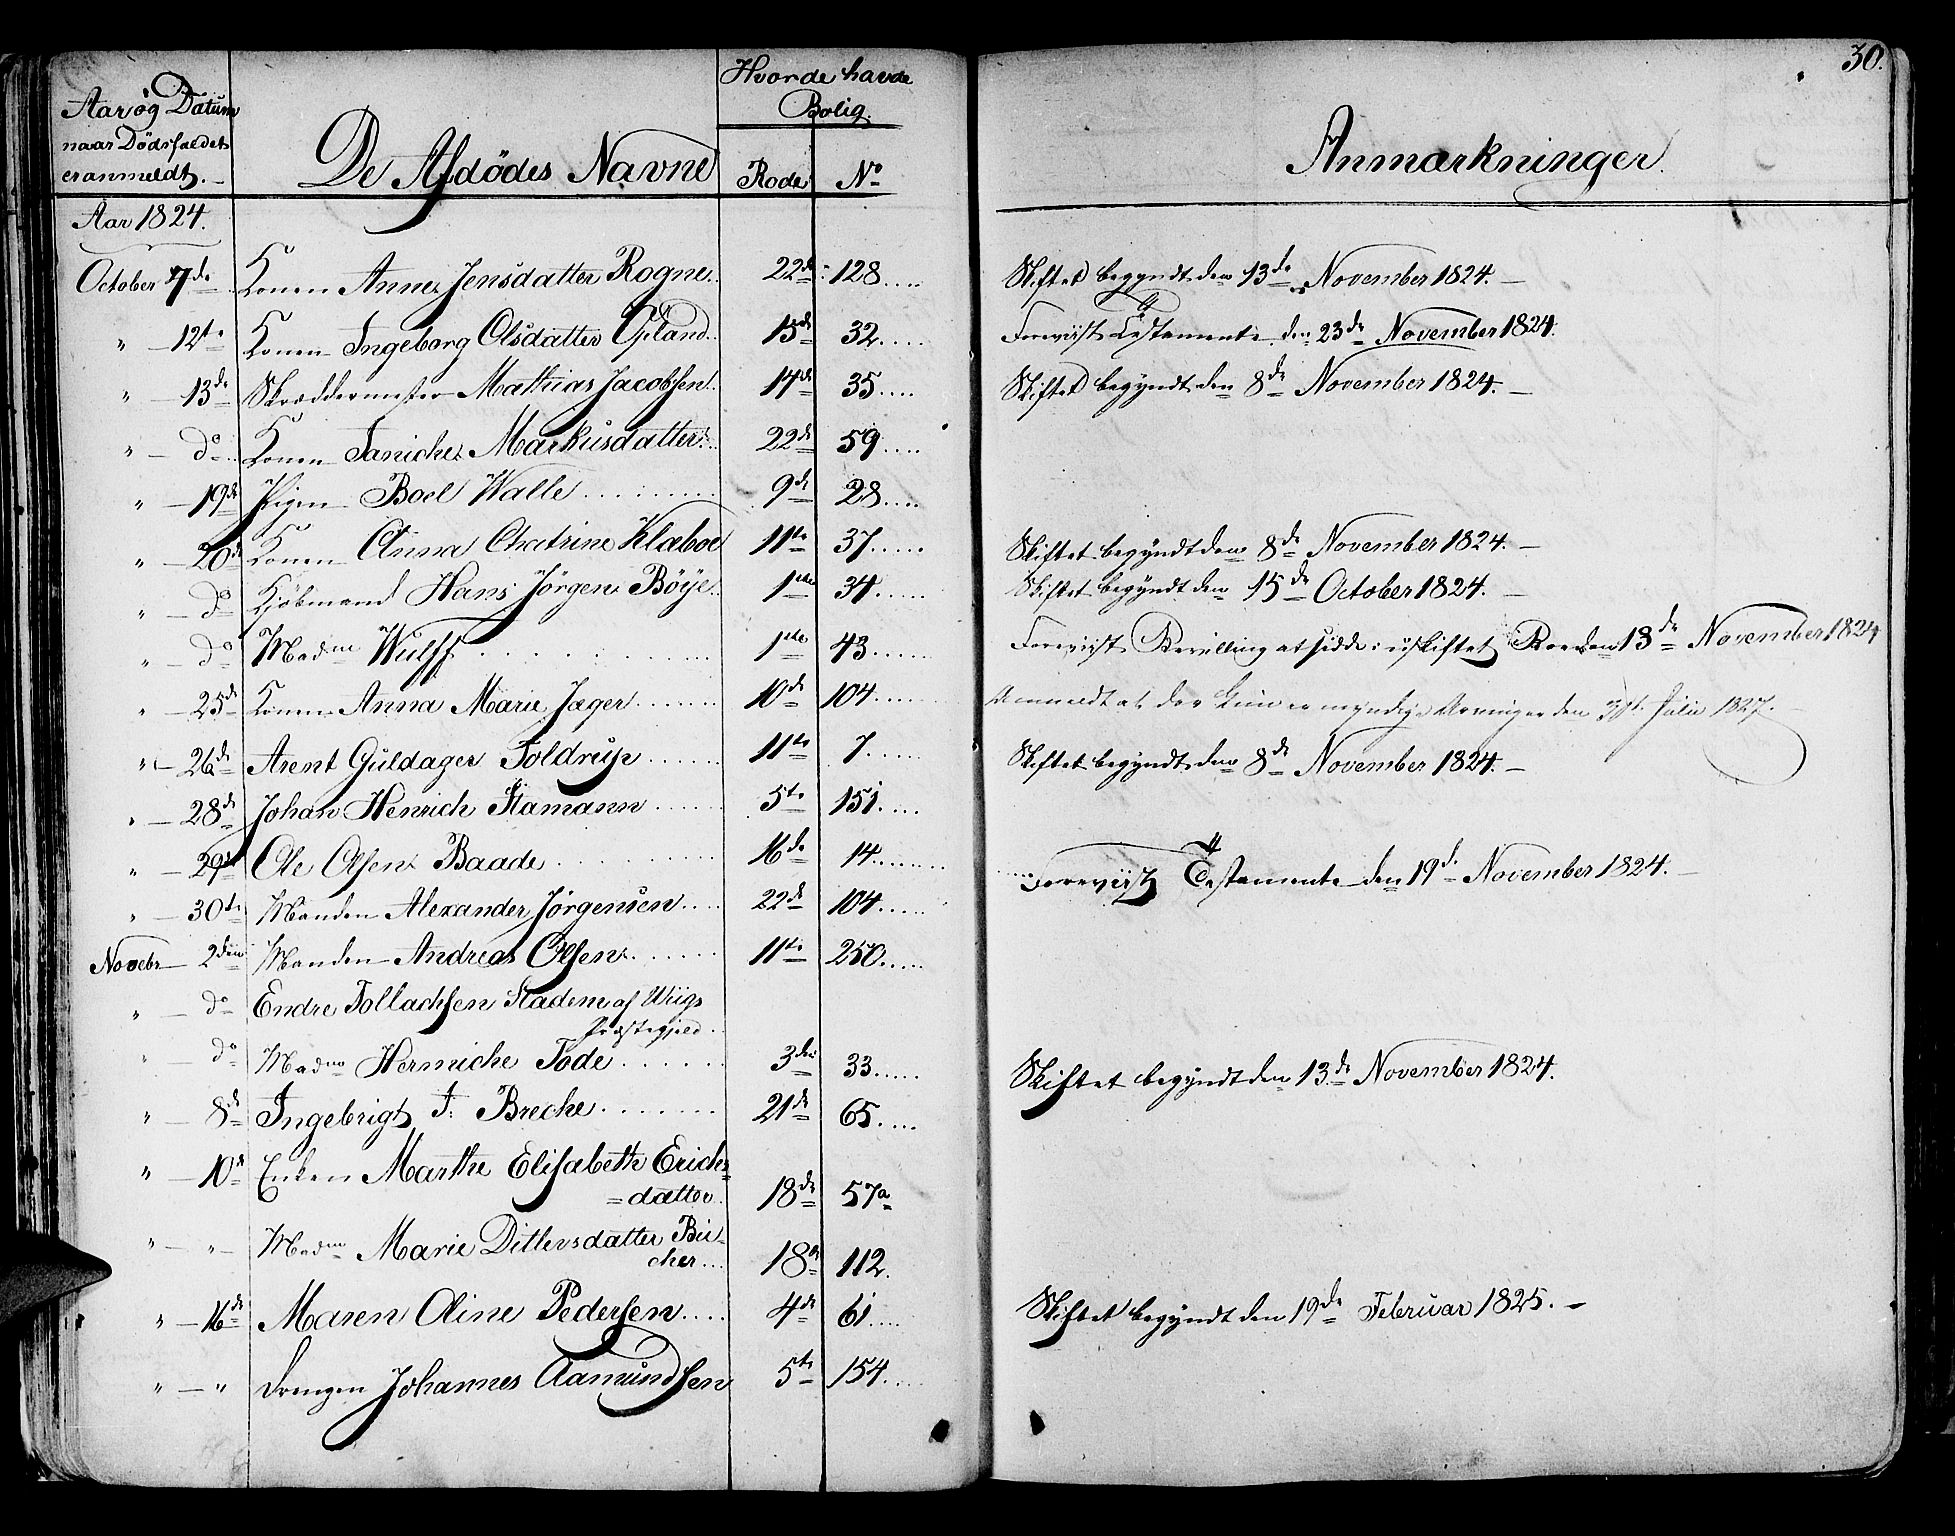 30.
Aar og Datum
naar Dödsfaldet
er anmeldt.
De Afdödes Navne
Hvor de havde
Bolig.
Rode No
Anmærkninger.
Aar 1824.
October 7de Konen Anne Jensdatter Rogne.. 22de 128.... Skiftet begyndt den 13de November 1824.
" — 12te Konen Ingeborg Olsdatter Opland.. 15de 32.... Foreviist Testamente den 23de November 1824.
" — 13de Skræddermester Mathias Jacobsen. 14de 35.... Skiftet begyndt den 8de November 1824.
" — do Konen Janiche Markusdatter.. 22de 59....
" — 19de Pigen Boel Walle......... 9de 28....
" — 20de Konen Anna Chatrine Klaboe 11te 37..... Skiftet begyndt den 8de November 1824.
" — do Kjöbmand Hans Jörgen Böÿe.. 1ste 34..... Skiftet begyndt den 15de October 1824.
" — do Madme Wulff......... 1ste 43...... Foreviist Bevilling at sidde i uskiftet Boe den 13de November 1824
" — 25de Konen Anna Marie Jæger...... 10de 104..... Anmeldt at der kun er myndige Arvinger den Julii 1827.
" — 26de Arent Guldager Toldrup...... 11te 7..... Skiftet begyndt den 8de November 1824.
" — 28de Johan Henrich Stamann..... 5te 151....
" — 29de Ole Olsen Baade......... 16de 14....... Foreviist Testamente den 19de November 1824.
" — 30te Manden Alexander Jörgensen.... 22de 104.....
Novebr 2den Manden Andreas Olsen...... 11te 250.....
" — do Endre Tollachsen Stadem af Wiigs
Præstegield.
" — do Madme Hermiche Tode...... 3die 33..... Skiftet begyndt den 13de November 1824.
" — 8de Ingebrigt T. Breche....... 21de 65....
" — 10de Enken Marthe Elisabeth Erichs=
=datter. 18de 57a
" — " — Madme Marie Ditlevsdatter Bü=
cher... 18de 112.
" — 16de Maren Oline Pedersen.... 4de 61.... Skiftet begyndt den 19de Februar 1825.
" — " Drengen Johannes Aamundsen 5te 154....